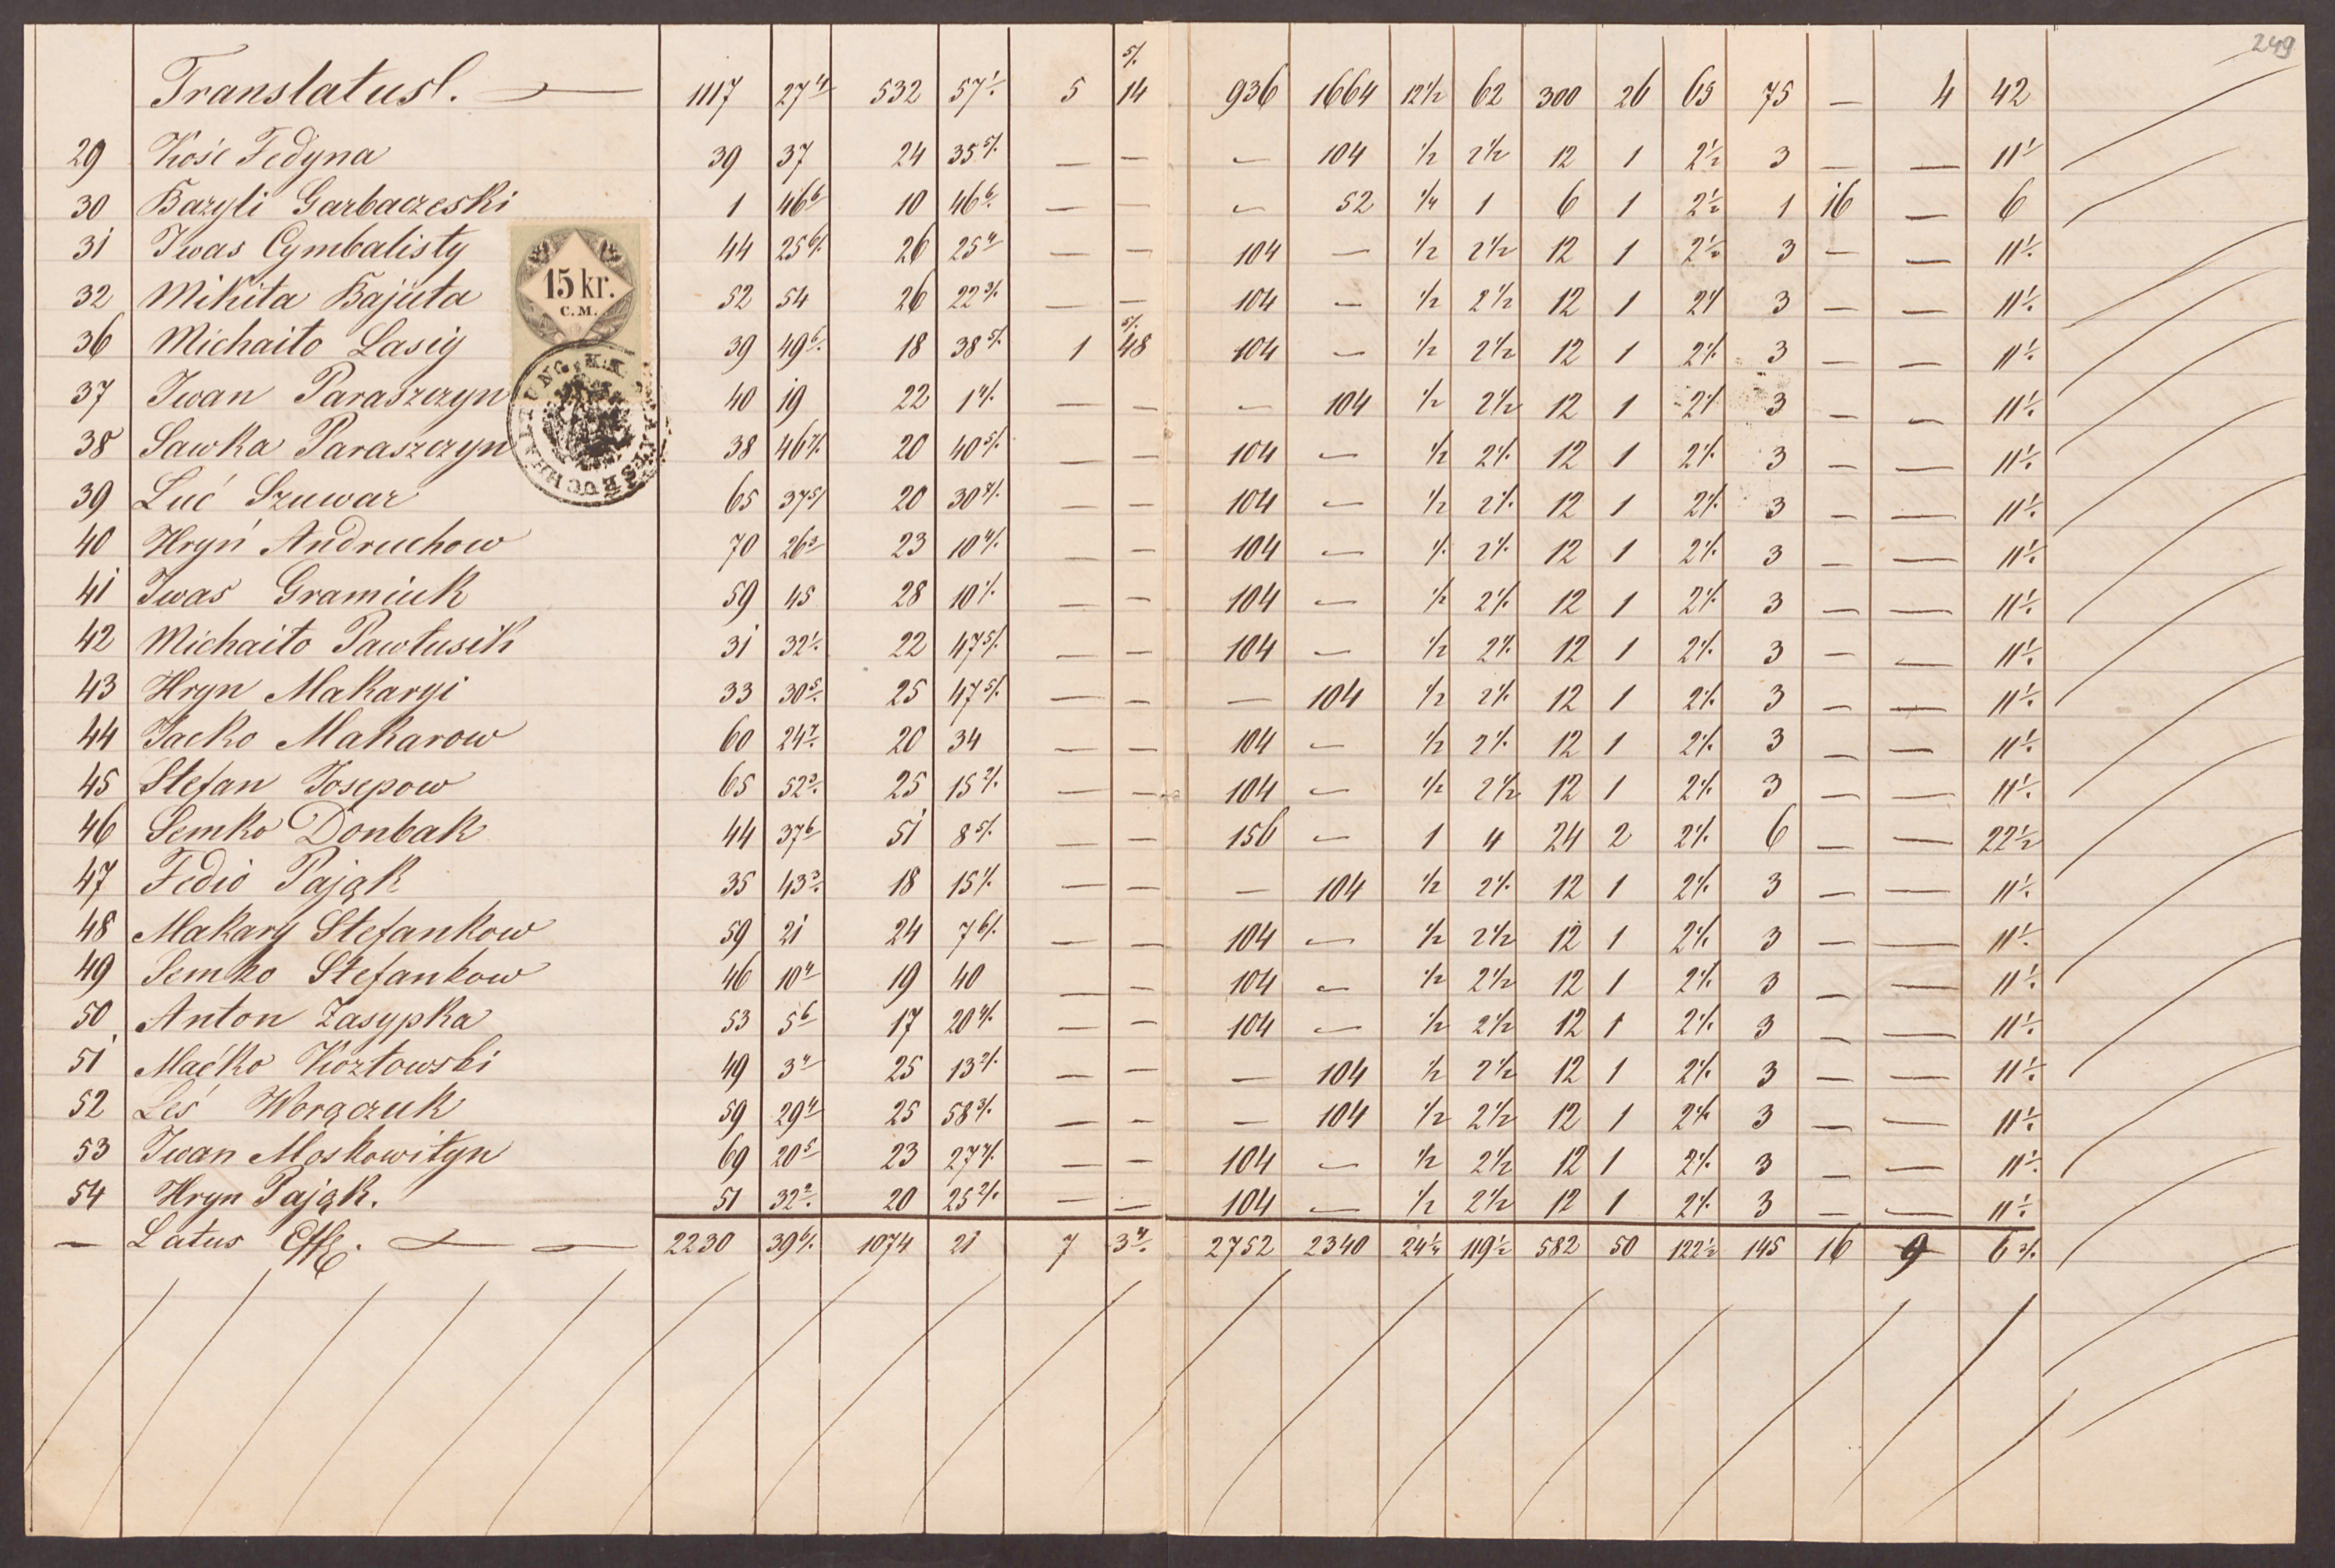 249
Translatusl. 1117 27 4/ 532 57 1/. 5 14 5/. 936 1664 12 1/2 62 300 26 65 75 — 4 42
29 Kość Fedyna 39 37 24 35 5/. — — — 104 1/2 2 1/2 12 1 2 1/2 3 — — 11 1/.
30 Bazyli Garbaczeski 1 46 6/ 10 46 6/. — — — 52 1/4 1 6 1 2 1/2 1 16 — 6
31 Iwas Cymbalisty 44 25 6/. 26 25 4/ — — 104 — 1/2 2 1/2 12 1 2 1/2 3 — — 11 1/.
32 Mikita Bajuta 52 54 26 22 3/. — — 104 — 1/2 2 1/2 12 1 2 1/ 3 — — 11 1/.
36 Michaiło Lasiy 39 49 6/. 18 38 5/. 1 48 5/. 104 — 1/2 2 1/2 12 1 2 1/. 3 — — 11 1/.
37 Iwan Paraszczyn 40 19 22 1 4/. — — — 104 1/2 2 1/2 12 1 2 1/ 3 — — 11 1/.
38 Sawka Paraszczyn 38 46 7/. 20 40 5/. — — 104 — 1/2 2 1/. 12 1 2 1/. 3 — — 11 1/.
39 Luć Szuwar 65 37 5/ 20 30 4/. — — 104 — 1/2 2 1/. 12 1 2 1/. 3 — — 11 1/.
40 Hryń Andruchow 70 26 3/ 23 10 4/. — — 104 — 1/. 2 1/. 12 1 2 1/. 3 — — 11 1/.
41 Iwas Gramiuk 59 45 28 10 1/. — — 104 — 1/2 2 1/. 12 1 2 1/. 3 — — 11 1/.
42 Michaiło Pawlusik 31 32 1/. 22 47 5/. — — 104 — 1/2 2 1/. 12 1 2 1/. 3 — — 11 1/.
43 Hryn Makaryi 33 30 5/. 25 47 5/. — — — 104 1/2 2 1/. 12 1 2 1/. 3 — — 11 1/.
44 Jacko Makarow 60 24 7/. 20 34 — — 104 — 1/2 2 1/. 12 1 2 1/. 3 — — 11 1/.
45 Stefan Josepow 65 52 3/. 25 15 2/. — — 104 — 1/2 2 1/2 12 1 2 1/. 3 — — 11 1/.
46 Semko Donbak 44 37 6/ 51 8 5/. — — 156 — 1 4 24 2 2 1/. 6 — — 22 1/2
47 Fedio Pająk 35 43 3/. 18 15 1/. — — — 104 1/2 2 1/. 12 1 2 1/. 3 — — 11 1/.
48 Makary Stefankow 59 21 24 7 6/. — — 104 — 1/2 2 1/2 12 1 2 1/. 3 — — 11 1/.
49 Semko Stefankow 46 10 4/ 19 40 — — 104 — 1/2 2 1/2 12 1 2 1/. 3 — — 11 1/.
50 Anton Zasypka 53 5 6/ 17 20 4/. — — 104 — 1/2 2 1/2 12 1 2 1/. 3 — — 11 1/.
51 Maćko Kozłowski 49 3 4/ 25 13 2/. — — — 104 1/2 2 1/2 12 1 2 1/. 3 — — 11 1/.
52 Leś Worączuk 59 29 4/ 25 58 3/. — — — 104 1/2 2 1/2 12 1 2 1/. 3 — — 11 1/.
53 Iwan Moskowityn 69 20 5/ 23 27 7/. — — 104 — 1/2 2 1/2 12 1 2 1/. 3 — — 11 1/.
54 Hryn Pająk. 51 32 2/. 20 25 2/. — — 104 — 1/2 2 1/2 12 1 2 1/. 3 — — 11 1/.
— Latus 2230 39 6/. 1074 21 7 3 4/. 2752 2340 24 1/4 119 1/2 582 50 122 1/2 145 16 9 6 3/.
15 kr.
C.M.